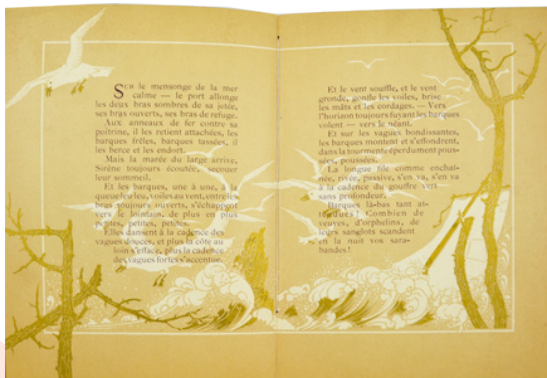 Sur le mensonge de la mer
calme — le port allonge
les deux bras sombres de sa jetée,
ses bras ouverts, ses bras de refuge.
Aux anneaux de fer contre sa
poitrine, il les retient attachées, les
barques frêles, barques tassées, il
les berce et les endort.
Mais la marée du large arrive,
Sirène toujours écoutée, secouer
leur sommeil.
Et les barques, une à une, à la
queue leu leu, voiles au vent, entre les
bras toujours ouverts, s'échappent
vers le lointain, de plus en plus
petites, petites, petites.
Elles dansent à la cadence des
vagues douces, et plus la côte au
loin s'efface, plus la cadence
des vagues fortes s'accentue.
Et le vent souffle, et le vent
gronde, gonfle les voiles, brise
les mâts et les cordages. — Vers
l'horizon toujours fuyant les barques
volent — vers le néant.
Et sur les vagues bondissantes,
les barques montent et s'effondrent,
dans la tourmente éperdument pous-
sées, poussées.
La longue file comme enchaî-
née, rivée, passive, s'en va, s'en va
à la cadence du gouffre vert
sans profondeur.
Barques là-bas tant at-
tendues! Combien de
veuves, d'orphelins, de
leurs sanglots scandent
en la nuit vos sara-
bandes!